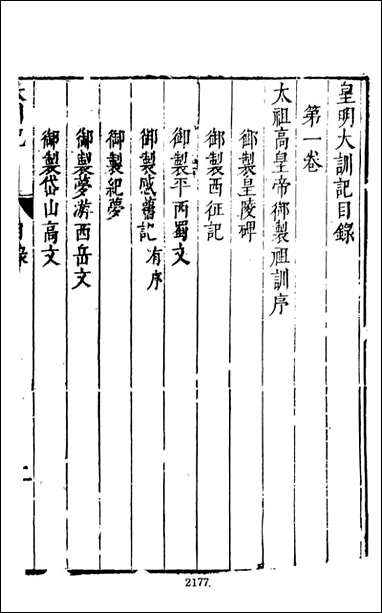 皇明大訓記目錄
第一卷
太祖高皇帝御製祖訓序
御製皇陵碑
御製西征記
御製平西蜀文
御製感舊記有序
御製紀夢
御製夢游西岳文
御製岱山高文
2177.